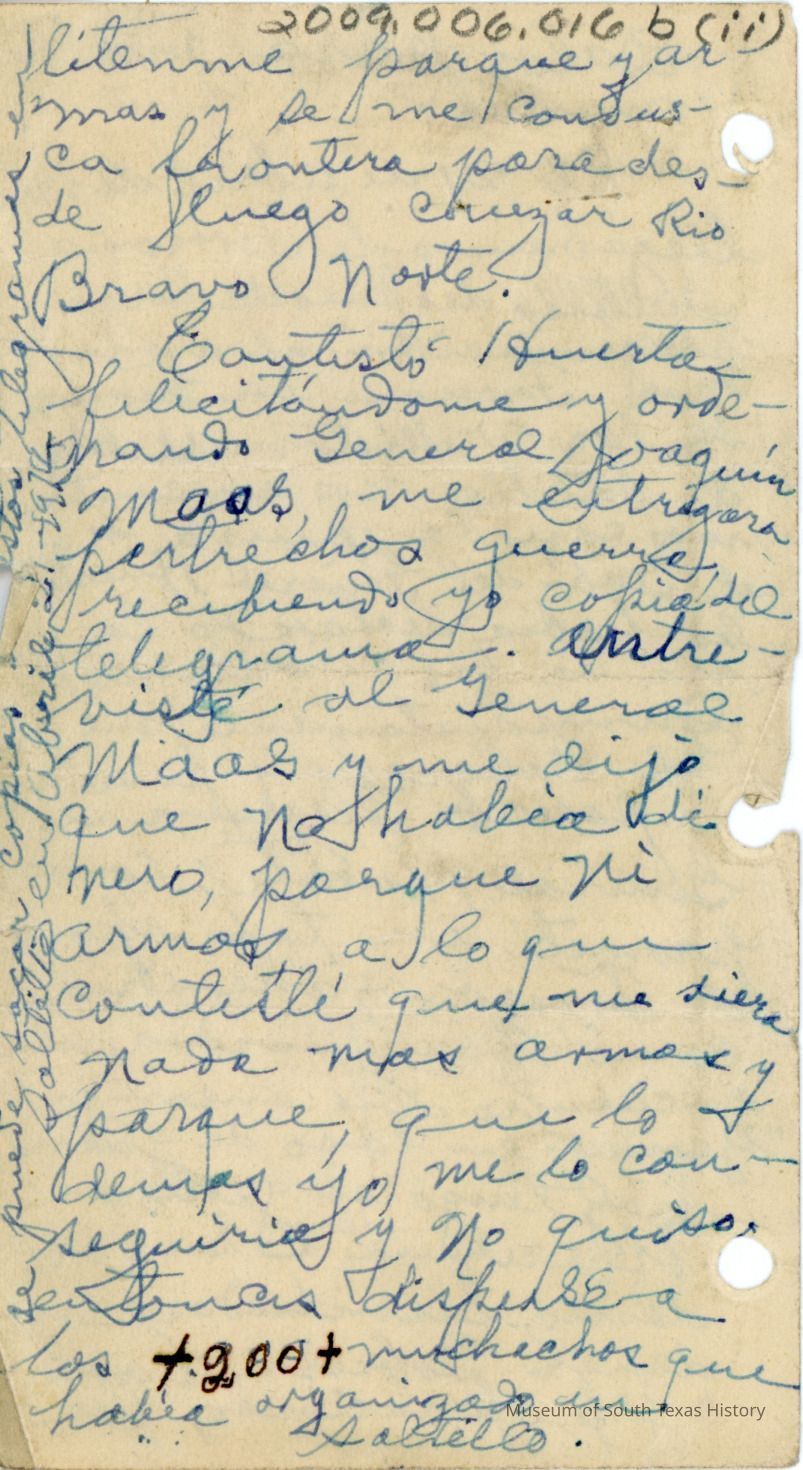 2009.006.016 b (ii)
litenme parque y ar-
mas y se me condus-
ca frontera para des-
de fluego cruzar Rio
Bravo Norte.
Contestó Huerta
felicitándome y orde-
nando General Joaquín
Maas, me entregara
pertrechos guerra,
recibiendo yo copia del
telegrama. Entre-
visté al General
Maas y me dijo
que no había di-
nero, parque ni
armas, a lo que
contesté que me diera
nada mas armas y
parque, que lo
demas yo me lo con-
seguiria y no quiso.
entonces dispensé a
los +200+ muchachos que
había organizado en
Saltillo.
Se puede sacar copias estos telegramas en
Saltillo en Abril 21-1914
Museum of South Texas History